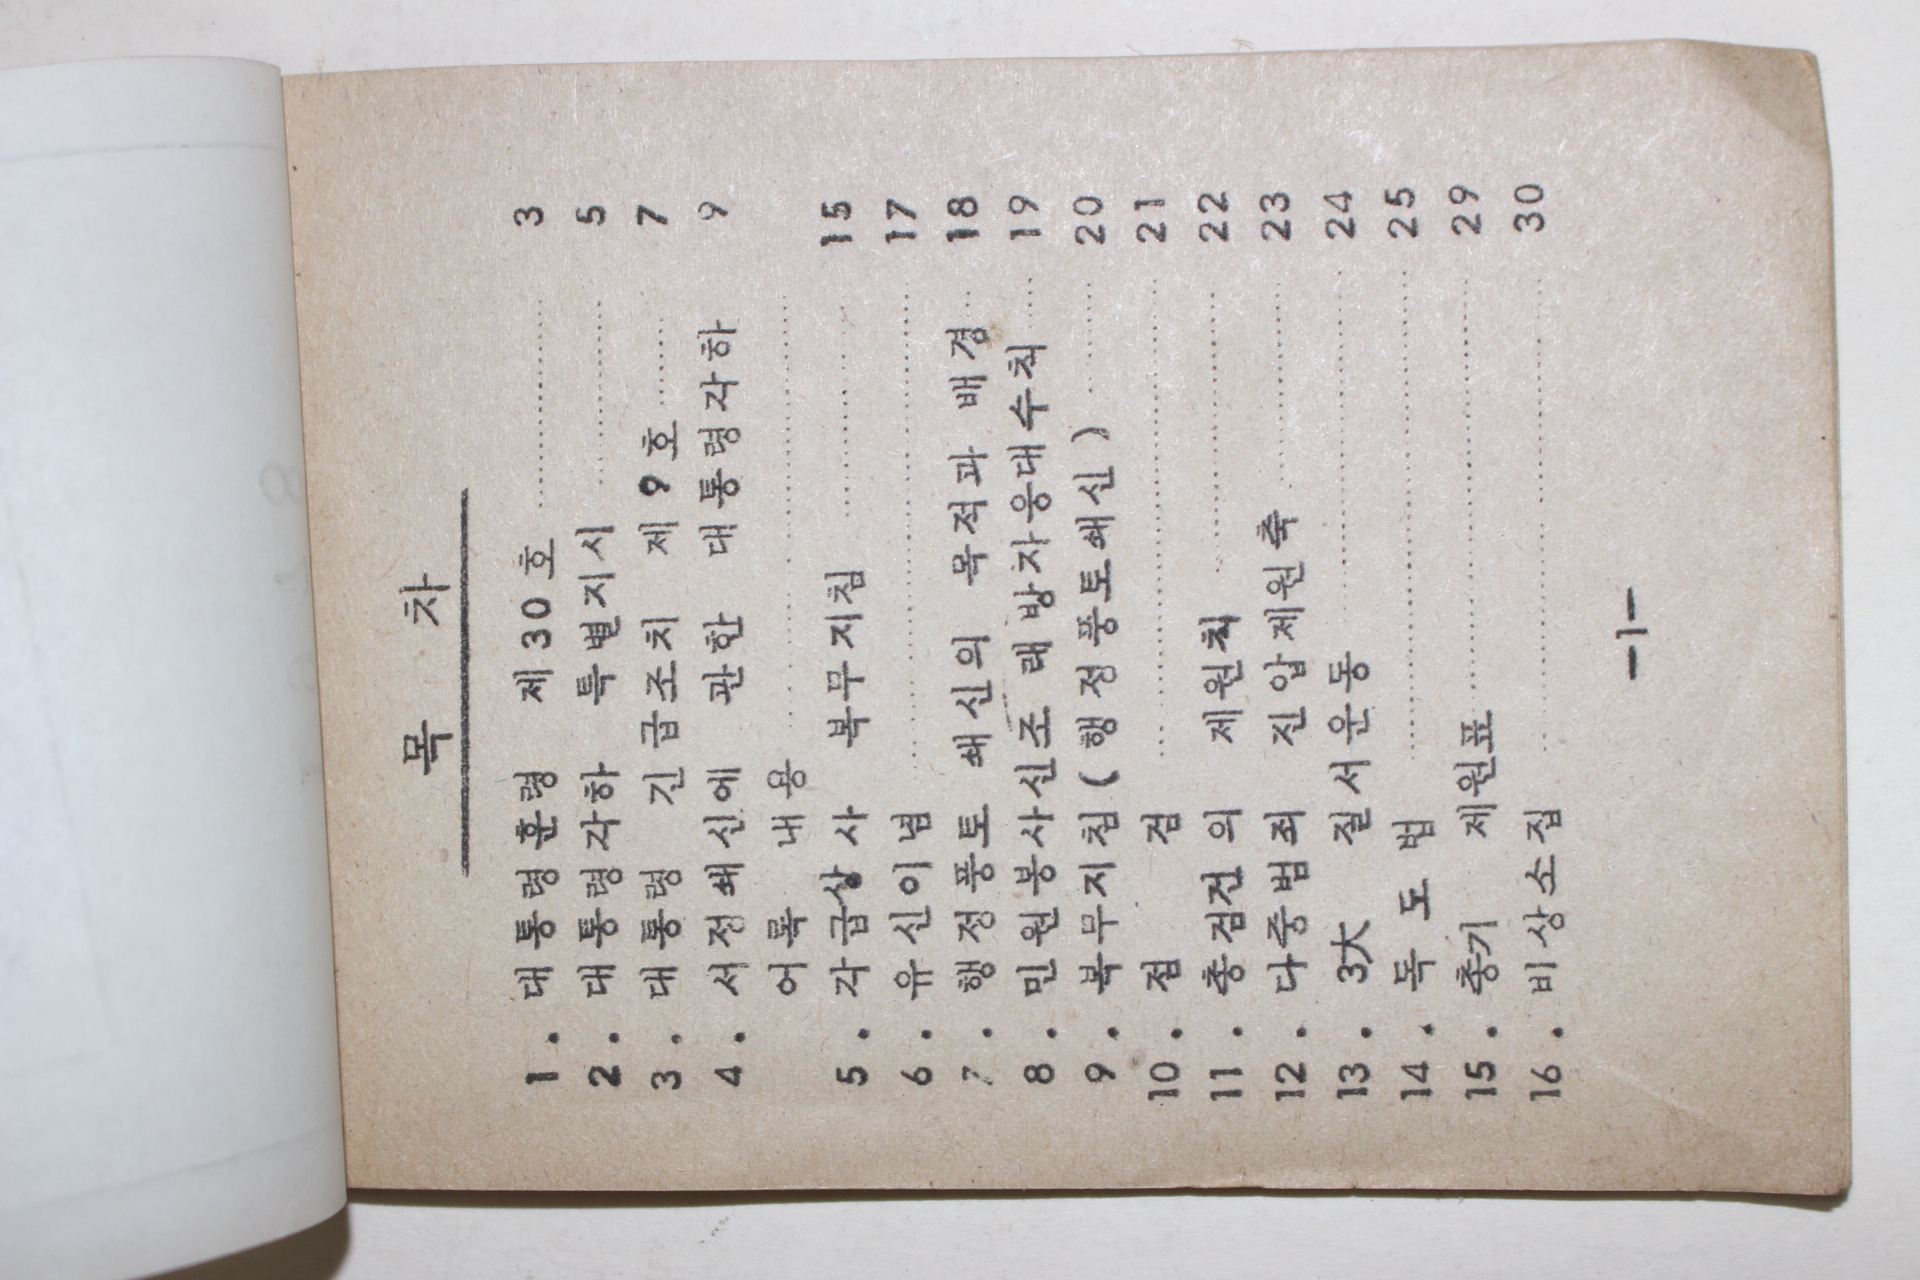 목 차
1. 대통령훈령 제30호 ………… 3
2. 대통령각하 특별지시 ………… 5
3. 대통령 긴급조치 제9호 ……… 7
4. 서정쇄신에 관한 대통령각하 9
어록 내용 ……………………
5. 각급상사 복무지침 ………… 15
6. 유신이념 …………………… 17
7. 행정풍토 쇄신의 목적과 배경 … 18
8. 민원봉사신조 래방자응대수칙 … 19
9. 복무지침(행정풍토쇄신) ……… 20
10. 점 검 …………………… 21
11. 총검건의 제원칙 …………… 22
12. 다중범죄 진압제원축 ………… 23
13. 3大 질서운동 ……………… 24
14. 독도법 …………………… 25
15. 총기 제원표 ……………… 29
16. 비상소집 ………………… 30
—1—